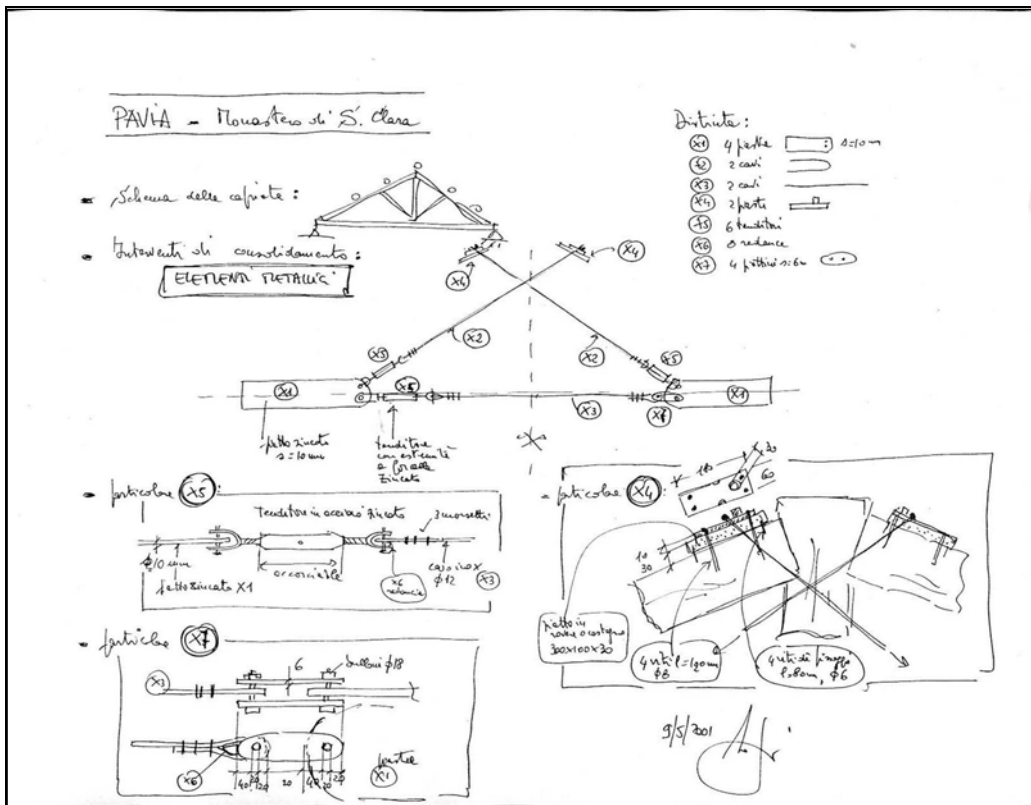 PAVIA - Monastero di S. Clara
Distinta:
X1 4 piastre s=10 m
X2 2 cavi
X3 2 cavi
X4 2 piastre
X5 6 tenditori
X6 8 redance
X7 4 s=6m
- Schema delle capriate:
- Interventi di consolidamento:
ELEMENTI METALLICI
X4
X4
X2
X2
X5
X5
X1
X5
X3
X7
X1
piatto zincato
s=10 mm
tenditore
con estremità
a forcella
zincato
- particolare X5:
Tenditore in acciaio zincato
3 morsetti
Φ10 mm
piatto zincato X1
accorciabile
X6
redancia
cavo inox
Φ12
X3
- particolare X4:
180
30
60
10
30
piatto in
rovere o castagno
300x100x30
4 viti l=120m
Φ8
4 viti di fissaggio
l.80m, Φ6
- particolare X7:
X3
6
bulloni Φ18
X6
40 20 20 20 40 20 20
piastra
X1
9/5/2001